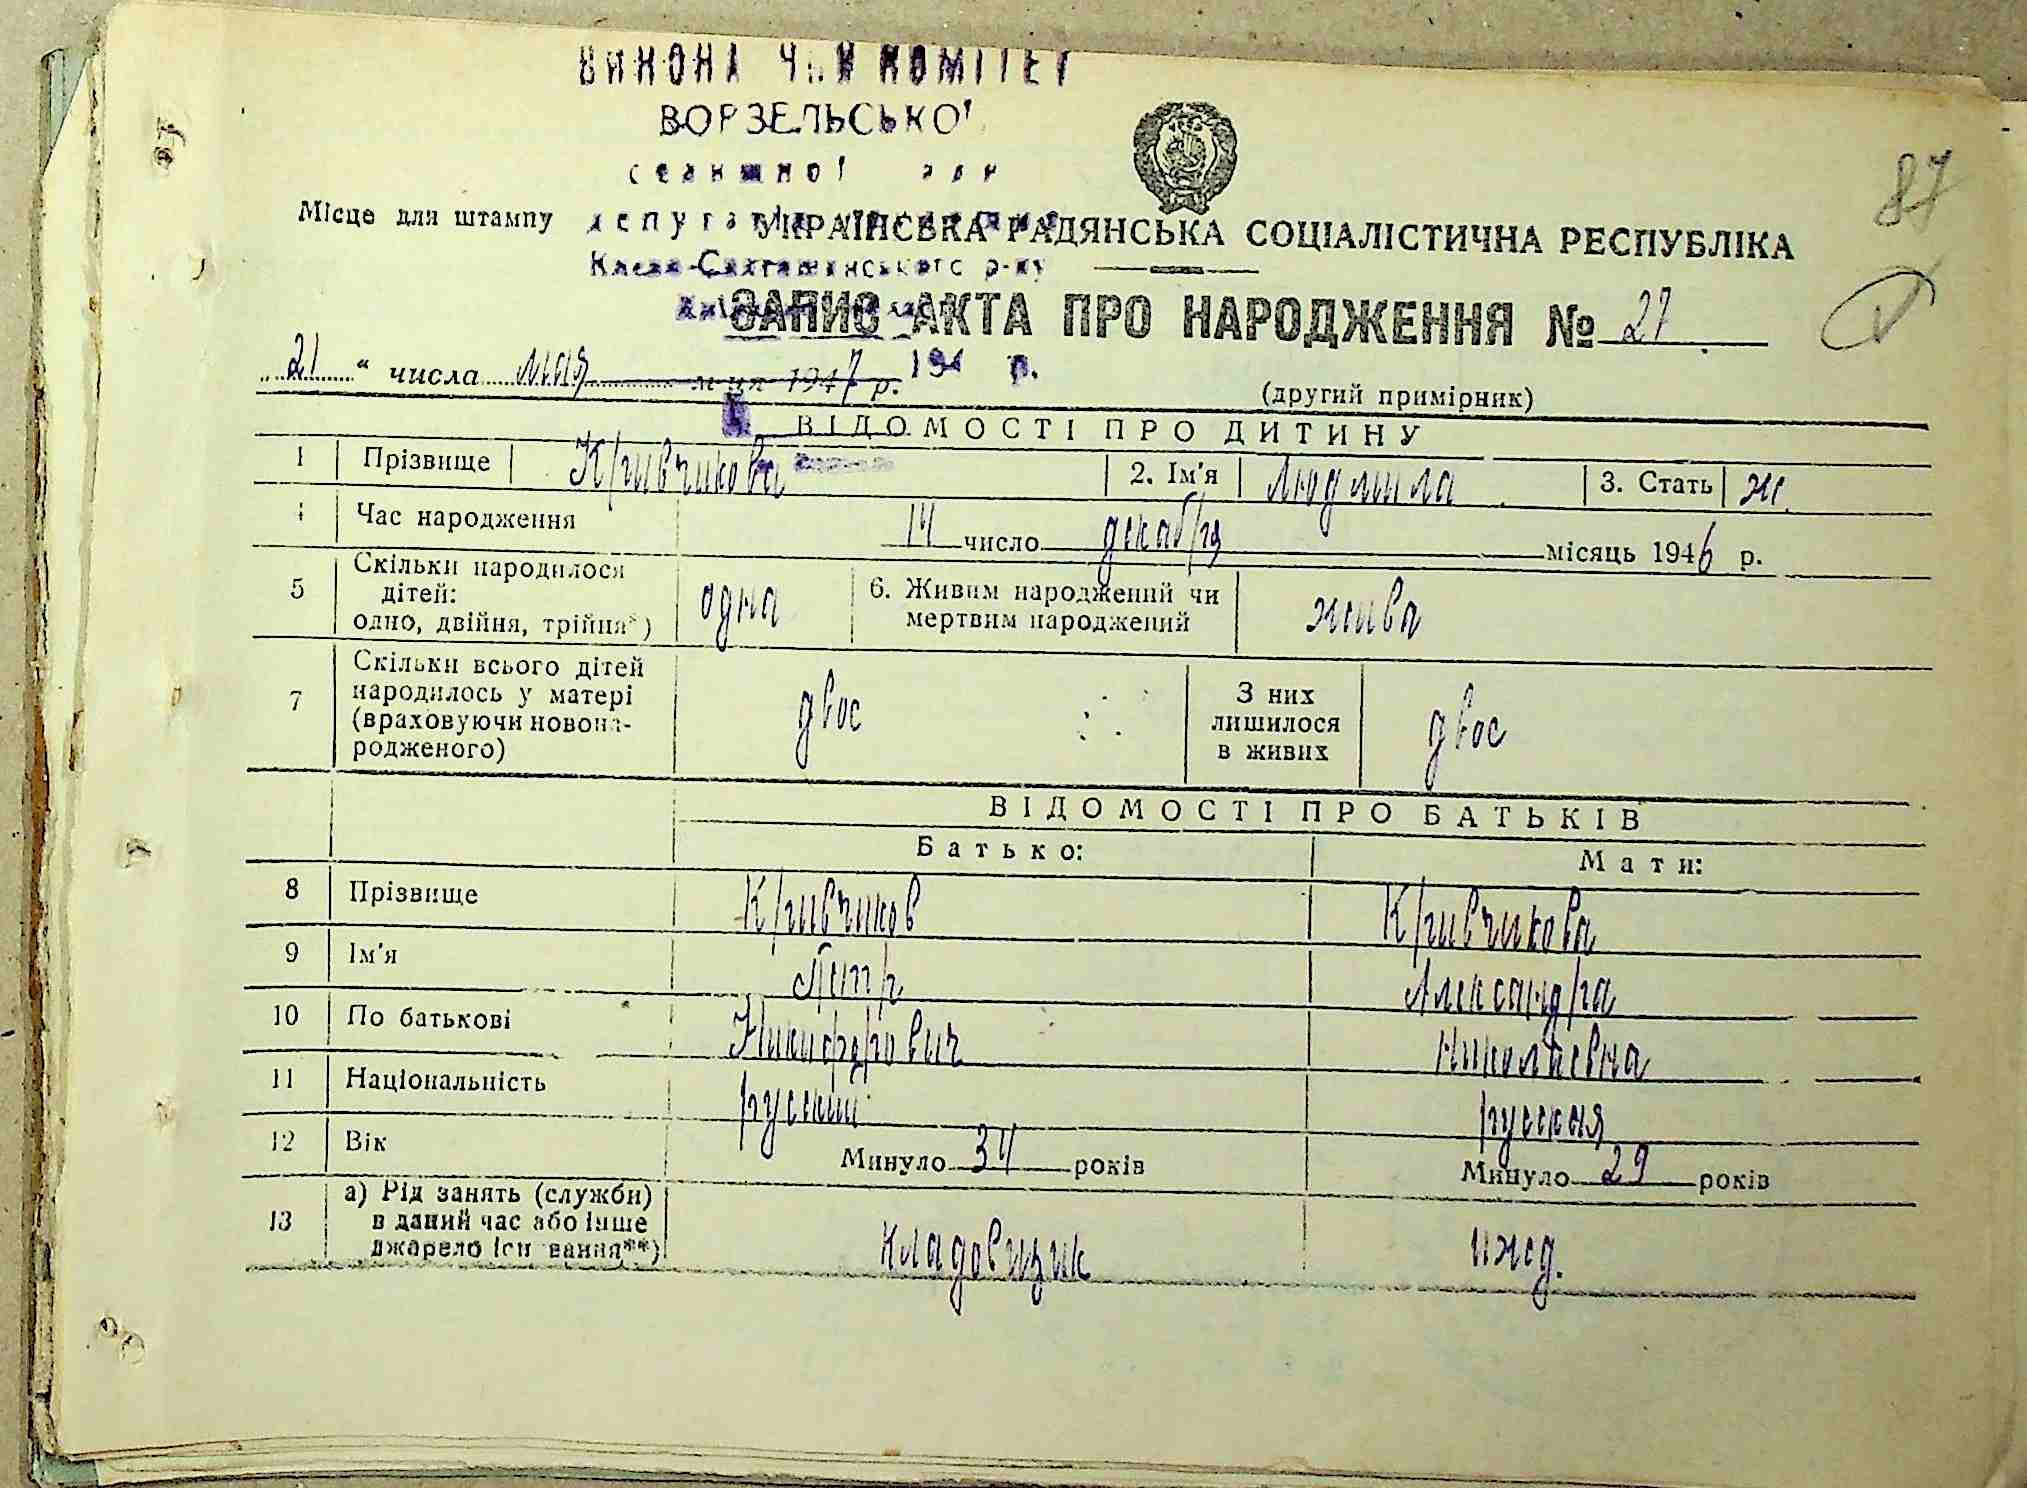 ВИКОНАВЧИЙ КОМІТЕТ
ВОРЗЕЛЬСЬКОЇ
87
Місце для штампу депутатів
УКРАЇНСЬКА РАДЯНСЬКА СОЦІАЛІСТИЧНА РЕСПУБЛІКА
Києво-Святошинського р-ну
ЗАПИС АКТА ПРО НАРОДЖЕННЯ № 27
„21“ числа мая м-ця 1947 р. 194 р.
(другий примірник)
ВІДОМОСТІ ПРО ДИТИНУ
1 Прізвище Кривчикова 2. Ім'я Людмила 3. Стать ж.
4 Час народження 14 число декабря місяць 1946 р.
5 Скільки народилося дітей: одно, двійня, трійня*) одна 6. Живим народжений чи мертвим народжений жива
7 Скільки всього дітей народилось у матері (враховуючи новонародженого) двое З них лишилося в живих двое
ВІДОМОСТІ ПРО БАТЬКІВ
Батько: Мати:
8 Прізвище Кривчиков Кривчикова
9 Ім'я Петр Александра
10 По батькові Никифорович Николаевна
11 Національність русский русская
12 Вік Минуло 34 років Минуло 29 років
13 а) Рід занять (служби) в даний час або інше джерело існування**) кладовщик ижд.